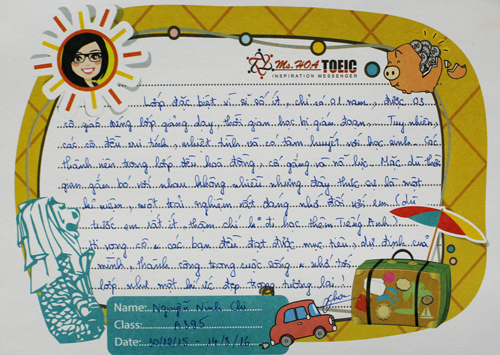 Ms. HOA TOEIC
INSPIRATION MESSENGER
Lớp đặc biệt vì sĩ số ít, chỉ có 01 nam, được 03
cô giáo đứng lớp giảng dạy, thời gian học bị gián đoạn. Tuy nhiên,
các cô đều vui tính, nhiệt tình và có tâm huyết với học sinh. Các
thành viên trong lớp đều hoà đồng, cố gắng và nỗ lực. Mặc dù thời
gian gắn bó với nhau không nhiều nhưng đây thực sự là một
kỉ niệm, một trải nghiệm rất đáng nhớ đối với em (dù
trước em rất ít, thậm chí ko đi học thêm Tiếng Anh).
Hi vọng cô và các bạn đều đạt được mục tiêu, dự định của
mình, thành công trong cuộc sống và nhớ tới
lớp như một kí ức đẹp trong tương lai!
Name: Nguyễn Ninh Chi
Class: A385
Date: 30/12/15 - 14/3/16